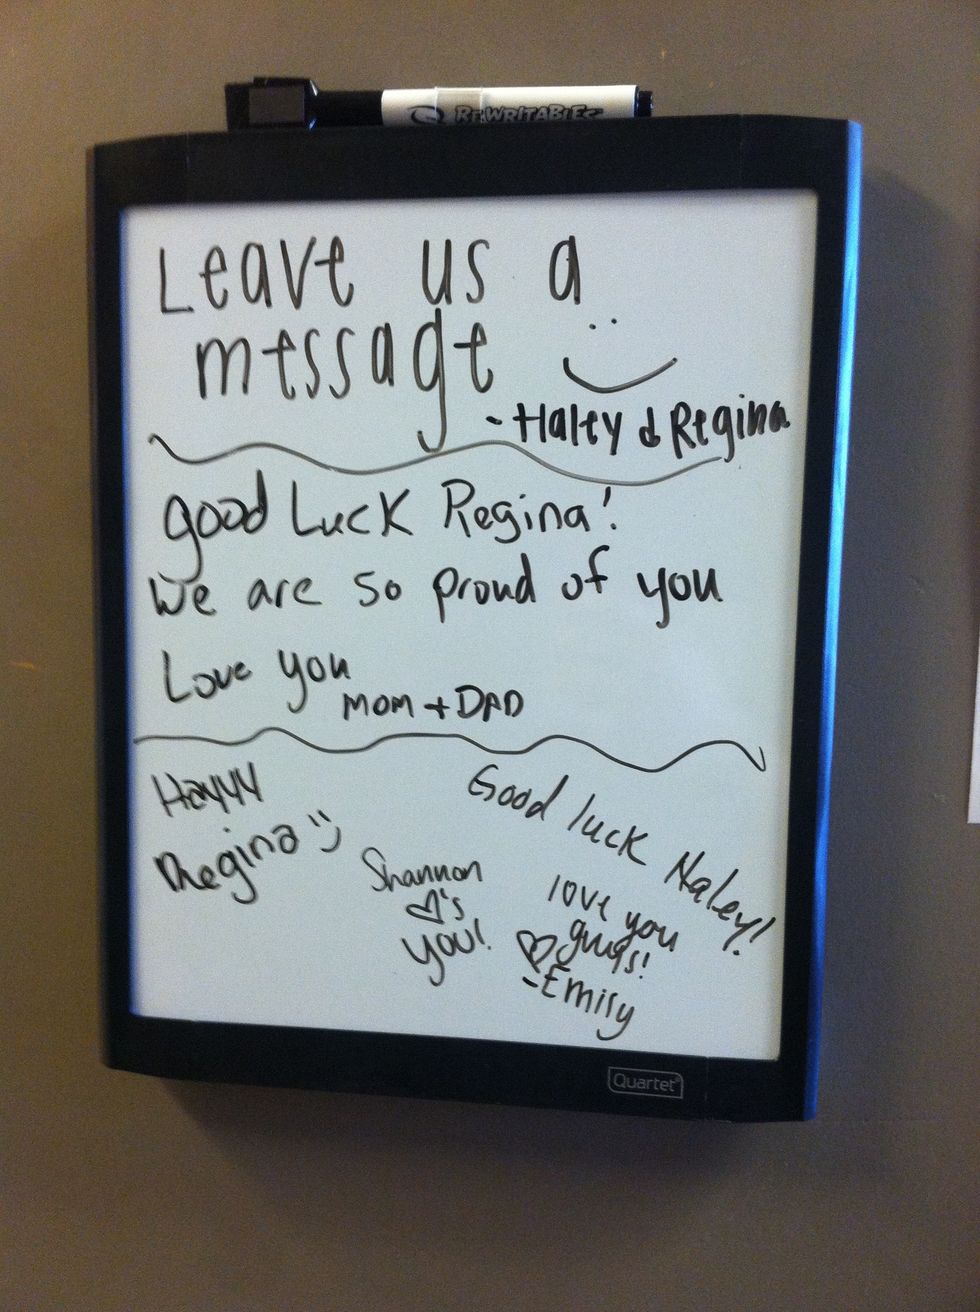 REWRITABLES
Leave us a
message :)
- Haley & Regina
Good Luck Regina!
We are so proud of you
Love you
Mom + DAD
Hayyyy
Regina :)
Shannon
♡'s
you!
Good luck Haley!
love you
guys!
♡
- Emily
Quartet®